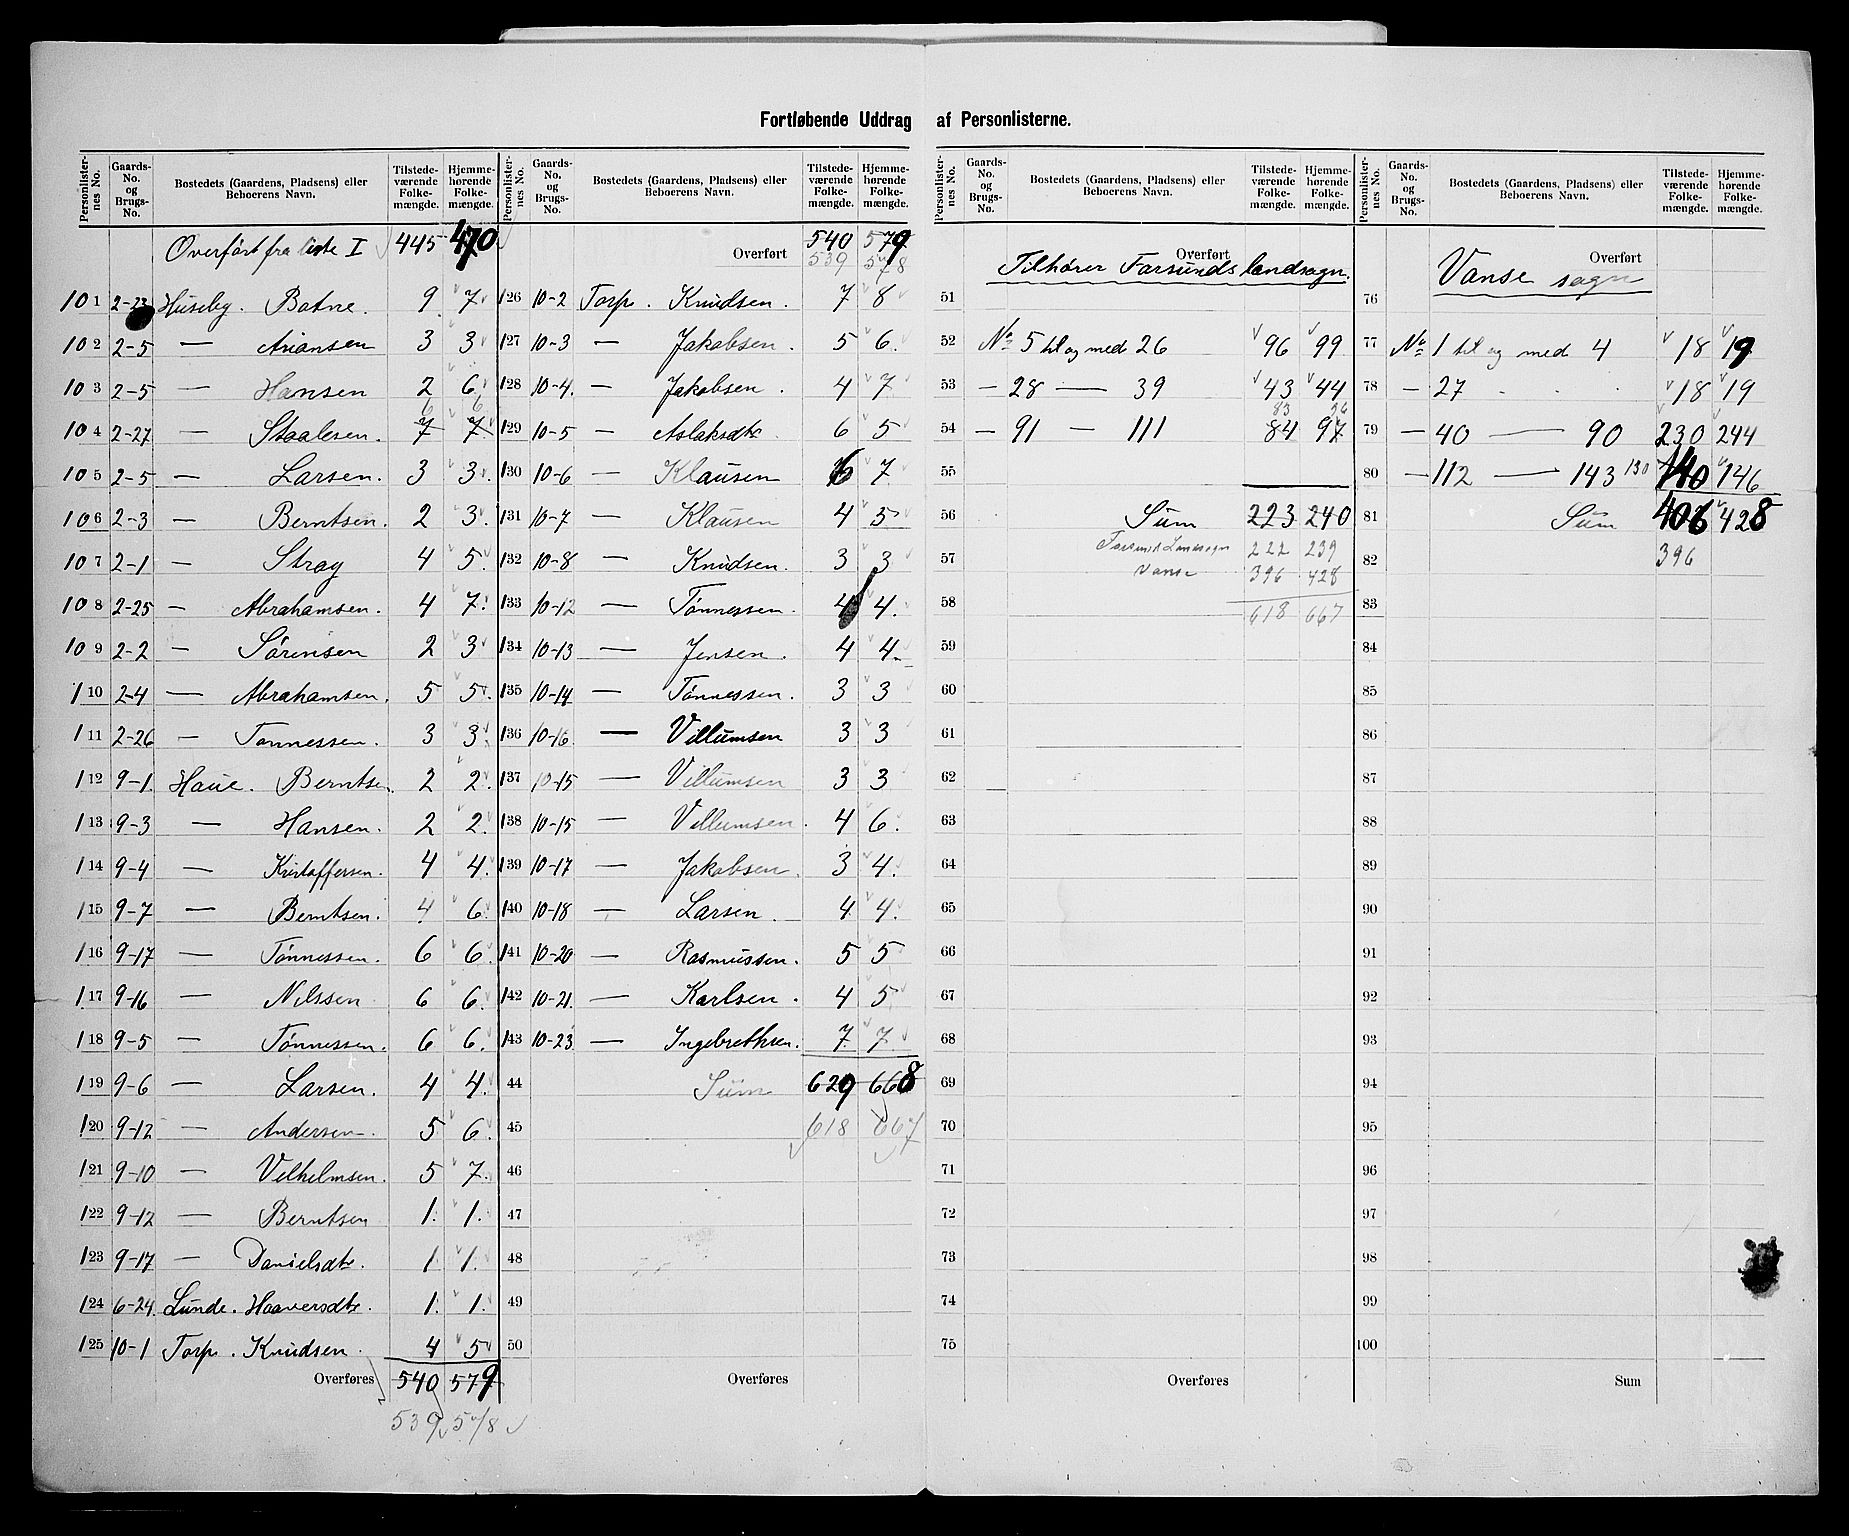 Fortløbende Uddrag af Personlisterne.
Personlister-nes No. Gaards-No. og Brugs-No. Bostedets (Gaardens, Pladsens) eller Beboerens Navn. Tilstede-værende Folke-mængde. Hjemme-hørende Folke-mængde.
Overført fra liste I 445 470
101 2-23 Huseby. Botne. 9 7
102 2-5 — Ariansen 3 3
103 2-5 — Hansen 2 6
6 6
104 2-27 — Staalesen. 7 7
105 2-5 — Larsen. 3 3
106 2-3 — Berntsen. 2 3
107 2-1 — Stray 4 5
108 2-25 — Abrahamsen. 4 7
109 2-2 — Sørensen 2 3
110 2-4 — Abrahamsen. 5 5
111 2-26 — Tønnessen. 3 3
112 9-1 Haue. Berntsen. 2 2
113 9-3 — Hansen. 2 2
114 9-4 — Kristoffersen. 4 4
115 9-7 — Berntsen. 4 6
116 9-17 — Tønnessen. 6 6
117 9-16 — Nilssen 6 6
118 9-5 — Tønnessen. 6 6
119 9-6 — Larsen. 4 4
120 9-12 — Andersen. 5 6
121 9-10 — Vilhelmsen. 5 7
122 9-12 — Berntsen 1 1
123 9-17 — Danielsdtr. 1 1
124 6-24 Lunde. Haaversdtr. 1 1
125 10-1 Torp. Knudsen. 4 5
Overføres 540 579
539 578
Personlister-nes No. Gaards-No. og Brugs-No. Bostedets (Gaardens, Pladsens) eller Beboerens Navn. Tilstede-værende Folke-mængde. Hjemme-hørende Folke-mængde.
Overført 540 579
539 578
126 10-2 Torp. Knudsen. 7 8
127 10-3 — Jakobsen. 5 6
128 10-4 — Jakobsen. 4 7
129 10-5 — Aslaksdtr. 6 5
130 10-6 — Klausen 6 7
131 10-7 — Klausen 4 5
132 10-8 — Knudsen. 3 3
133 10-12 — Tønnessen. 4 4
134 10-13 — Jensen. 4 4
135 10-14 — Tønnessen. 3 3
136 10-16 — Villumsen 3 3
137 10-15 — Villumsen 3 3
138 10-15 — Villumsen. 4 6
139 10-17 — Jakobsen. 3 4
140 10-18 — Larsen. 4 4
141 10-20 — Rasmussen. 5 5
142 10-21 — Karlsen. 4 5
143 10-23 — Ingebrethsen. 7 7
44 Sum 629 668
45 618 667
46
47
48
49
50
Overføres
Personlister-nes No. Gaards-No. og Brugs-No. Bostedets (Gaardens, Pladsens) eller Beboerens Navn. Tilstede-værende Folke-mængde. Hjemme-hørende Folke-mængde.
Overført
Tilhører Farsunds landsogn.
51
52 No 5 til og med 26 96 99
53 — 28 — 39 43 44
83 96
54 — 91 — 111 84 97
55
56 Sum 223 240
57 Farsund Landsogn 222 239
Vanse 396 428
58 618 667
59
60
61
62
63
64
65
66
67
68
69
70
71
72
73
74
75
Overføres
Personlister-nes No. Gaards-No. og Brugs-No. Bostedets (Gaardens, Pladsens) eller Beboerens Navn. Tilstede-værende Folke-mængde. Hjemme-hørende Folke-mængde.
Overført
Vanse sogn
76
77 No 1 til og med 4 18 19
78 — 27 18 19
79 — 40 — 90 230 244
80 — 112 — 143 130 140 146
81 Sum 406 428
82 396
83
84
85
86
87
88
89
90
91
92
93
94
95
96
97
98
99
100
Sum